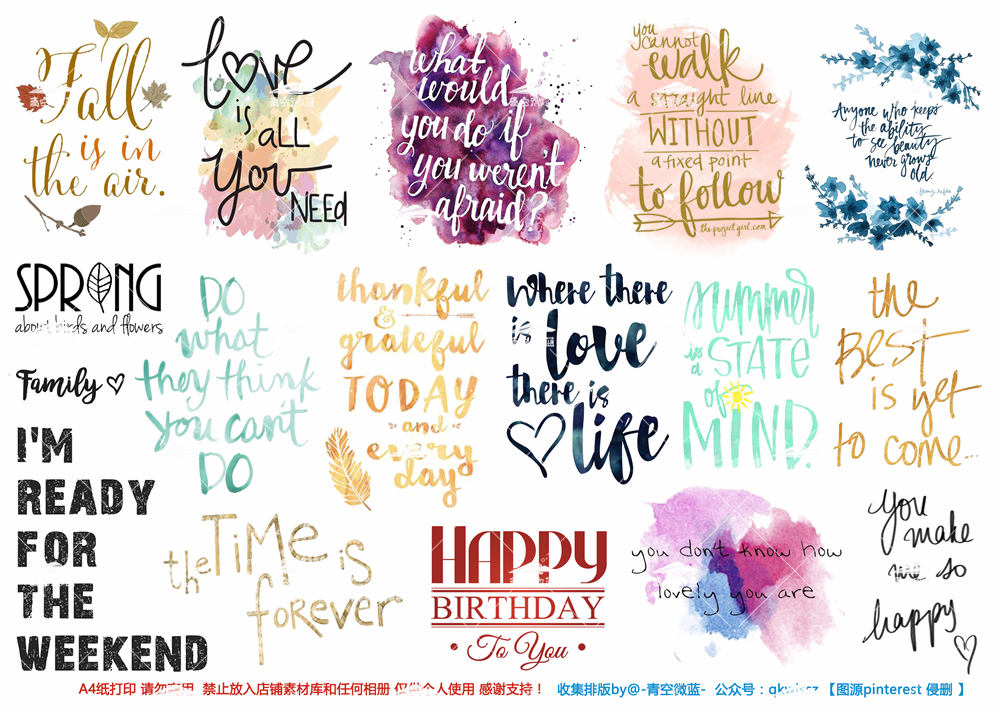 Fall
is in
the air.
Love
is
ALL
You
NEEd
what
would
you do if
you weren't
afraid?
you
cannot
walk
a straight line
WITHOUT
a fixed point
to follow
the project girl.com
Anyone who keeps
the ability
to see beauty
never grows
old.
- franz kafka
SPRING
about birds and flowers
Family
DO
what
they think
you can't
DO
thankful
&
grateful
TODAY
- and -
every
day
where there
is love
there is
life
summer
is a STATE
of
MIND.
the
BEST
is yet
to come...
I'M
READY
FOR
THE
WEEKEND
the TIME is
forever
HAPPY
BIRTHDAY
To You
you don't know how
lovely you are
You
make
me so
happy
A4纸打印 请勿商用 禁止放入店铺素材库和任何相册 仅供个人使用 感谢支持！ 收集排版by@-青空微蓝- 公众号：qkwjscz 【图源pinterest 侵删 】